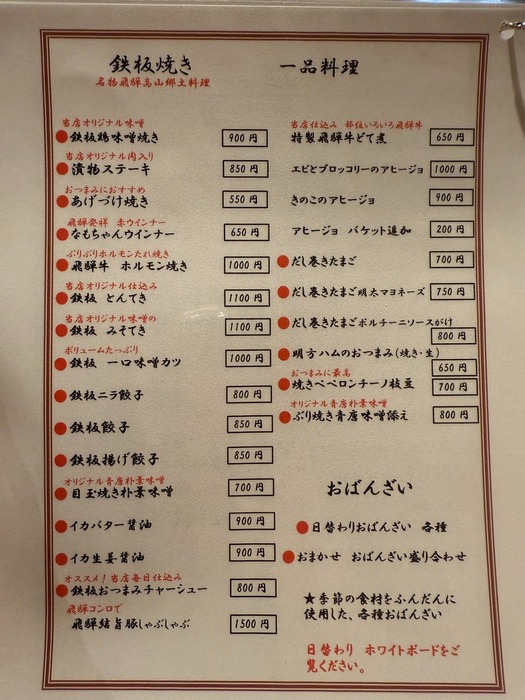 鉄板焼き
名物飛騨高山郷土料理
当店オリジナル味噌
鉄板鶏味噌焼き 900円
当店オリジナル肉入り
漬物ステーキ 850円
おつまみにおすすめ
あげづけ焼き 550円
飛騨発祥 赤ウインナー
なもちゃんウインナー 650円
ぷりぷりホルモンたれ焼き
飛騨牛 ホルモン焼き 1000円
当店オリジナル仕込み
鉄板 とんてき 1100円
当店オリジナル味噌の
鉄板 みそてき 1100円
ボリュームたっぷり
鉄板 一口味噌カツ 1000円
鉄板ニラ餃子 800円
鉄板餃子 850円
鉄板揚げ餃子 850円
オリジナル青唐朴葉味噌
目玉焼き朴葉味噌 700円
イカバター醤油 900円
イカ生姜醤油 900円
オススメ!当店毎日仕込み
鉄板おつまみチャーシュー 800円
飛騨コンロで
飛騨結旨豚しゃぶしゃぶ 1500円
一品料理
当店仕込み 部位いろいろ飛騨牛
特製飛騨牛どて煮 650円
エビとブロッコリーのアヒージョ 1000円
きのこのアヒージョ 900円
アヒージョ バケット追加 200円
だし巻きたまご 700円
だし巻きたまご明太マヨネーズ 750円
だし巻きたまごポルチーニソースがけ
800円
明方ハムのおつまみ(焼き・生)
650円
おつまみに最高
焼きペペロンチーノ枝豆 700円
オリジナル青唐朴葉味噌
ぶり焼き青唐味噌添え 800円
おばんざい
日替わりおばんざい 各種
おまかせ おばんざい盛り合わせ
★季節の食材をふんだんに
使用した、各種おばんざい
日替わり ホワイトボードをご
覧ください。